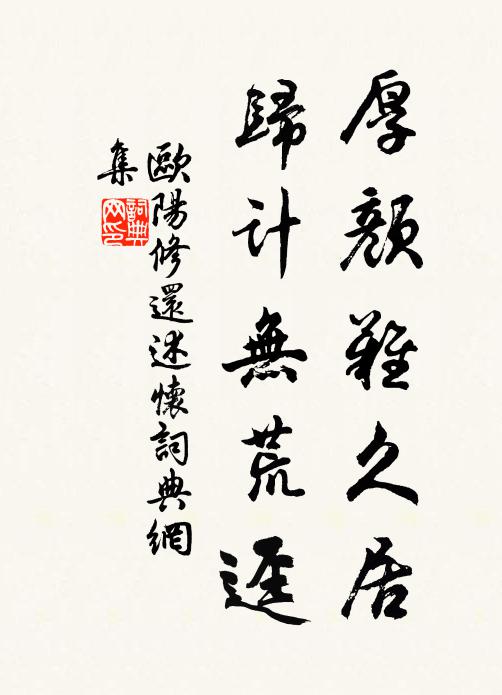 厚顏難久居
歸計無荒逕
歐陽修還述懷詞典網
集
詞典
网印